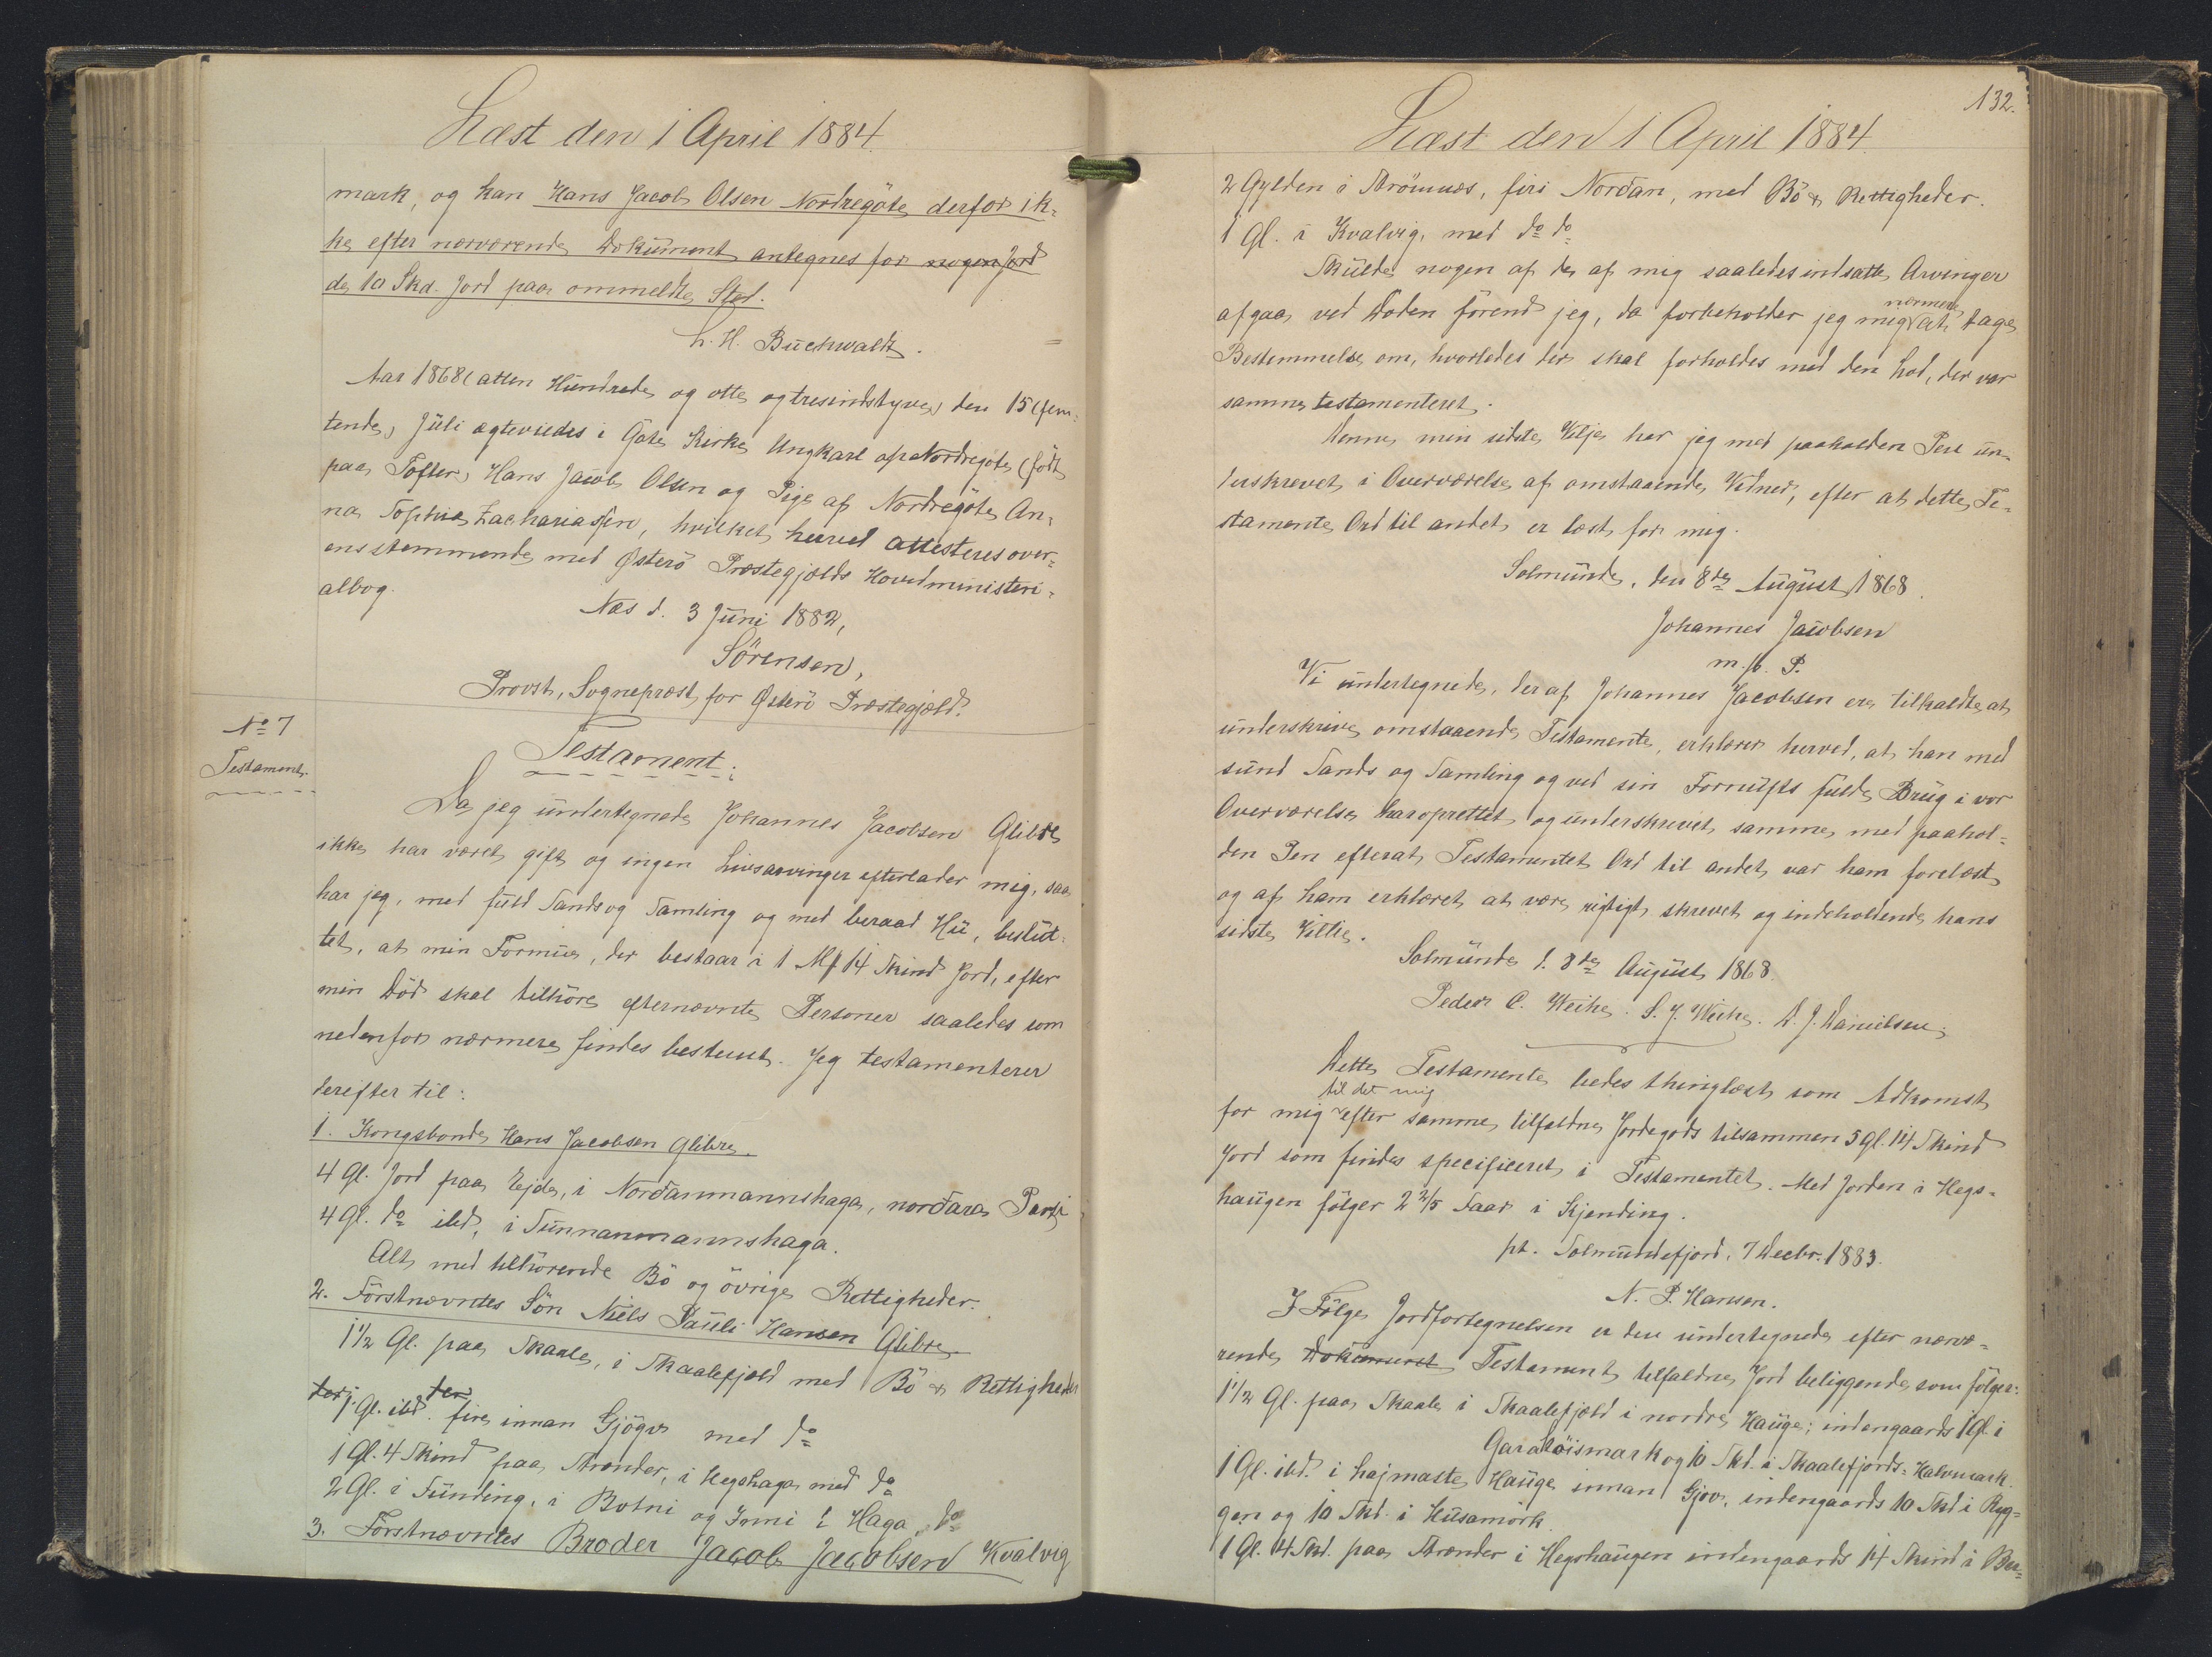 Læst den 1 April 1884.
mark, og kan Hans Jacob Olsen Nordregöte derfor ik-
ke efter nærværende Dokument antegnes for nogen Jord
de 10 Skd. Jord paa ommeldte Sted.
L. H. Buchwaldt.
Aar 1868 (atten Hundrede og otte og tresindstyve) den 15 (fem-
tende) Juli ægteviedes i Göte Kirke Ungkarl af Nordregöte (födt
paa Tofter) Hans Jacob Olsen og Pige af Nordregöte An-
na Sophie Zachariasen, hvilket herved attesteres over-
ensstemmende med Österö Præstegjælds Hovedministeri-
albog.
Næs d. 3 Juni 1882,
Sörensen,
Provst, Sognepræst for Österö Præstegjæld.
No 7
Testament.
Testament:
Da jeg undertegnede Johannes Jacobsen Glibre
ikke har været gift og ingen Livsarvinger efterlader mig, saa
har jeg, med fuld Sands og Samling og med beraad Hu, beslut-
tet, at min Formue, der bestaar i 1 Mk 14 Skind Jord, efter
min Död skal tilhöre efternævnte Personer saaledes som
nedenfor nærmere findes bestemt. Jeg testamenterer
derefter til:
1. Kongsbonde Hans Jacobsen Glibre.
4 Gl. Jord paa Ejde, i Nordanmannshaga, nordara Parti
4 Gl. do ibd, i Sunnanmannshaga.
Alt med tilhörende Bö og övrige Rettigheder.
2. Förstnævntes Sön Niels Pauli Hansen Glibre.
1 1/2 Gl. paa Skaale, i Skaalefjæld med Bö & Rettigheder
1 Gl. ibd. fire innan Gjögv med do
1 Gl. 4 Skind paa Strender, i Hegshaga med do
2 Gl. i Funding, i Botni og Inni í Haga, do
3. Förstnævntes Broder Jacob Jacobsen Kvalvig
132.
Læst den 1 April 1884.
2 Gylden i Strömnes, firi Nordan, med Bö & Rettigheder.
1 Gl. i Kvalvig, med do do
Skulde nogen af de af mig saaledes indsatte Arvinger
afgaa ved Döden förend jeg, da forbeholder jeg mig nærmere at tage
Bestemmelse om, hvorledes der skal forholdes med den Lod, der var
samme testamenteret.
Denne min sidste Vilje har jeg med paaholden Pen un-
derskrevet i Overværelse af omstaaende Vidner, efter at dette Te-
stamente Ord til andet er læst for mig.
Solmunde, den 8de August 1868.
Johannes Jacobsen
m. f. P.
Vi undertegnede, der af Johannes Jacobsen ere tilkaldte at
underskrive omstaaende Testamente, erklærer herved, at han med
sund Sands og Samling og ved sin Fornufts fulde Brug i vor
Overværelse har oprettet og underskrevet samme med paahol-
den Pen efterat Testamentet Ord til andet var ham forelæst
og af ham erklæret at være rigtigt skrevet og indeholdende hans
sidste Villie.
Solmunde d. 8de August 1868.
Peder C. Weihe. S. J. Weihe. D. J. Danielsen.
Dette Testamente bedes thinglæst som Adkomst
for mig til det mig efter samme tilfaldne Jordegods tilsammen 5 Gl. 14 Skind
Jord som findes specificeret i Testamentet. Med Jorden i Hegs-
haugen fölger 2 2/5 Faar i Kjending.
pt. Solmundefjord, 7 Decbr. 1883.
N. P. Hansen.
I Fölge Jordfortegnelsen er den undertegnede efter nærvæ-
rende Dokument Testament tilfaldne Jord beliggende som fölger:
1 1/2 Gl. paa Skaale i Skaalefjæld i nordre Hauge; indengaards 1 Gl. i
Garaloismark og 10 Skd. i Skaalefjords-Halvmark.
1 Gl. ibd. i hajmaste Hauge innan Gjov, indengaards 10 Skd i Ryg-
gen og 10 Skd. i Husamörk.
1 Gl. 4 Skd. paa Strender i Hegshaugen indengaards 14 Skind i Ber-